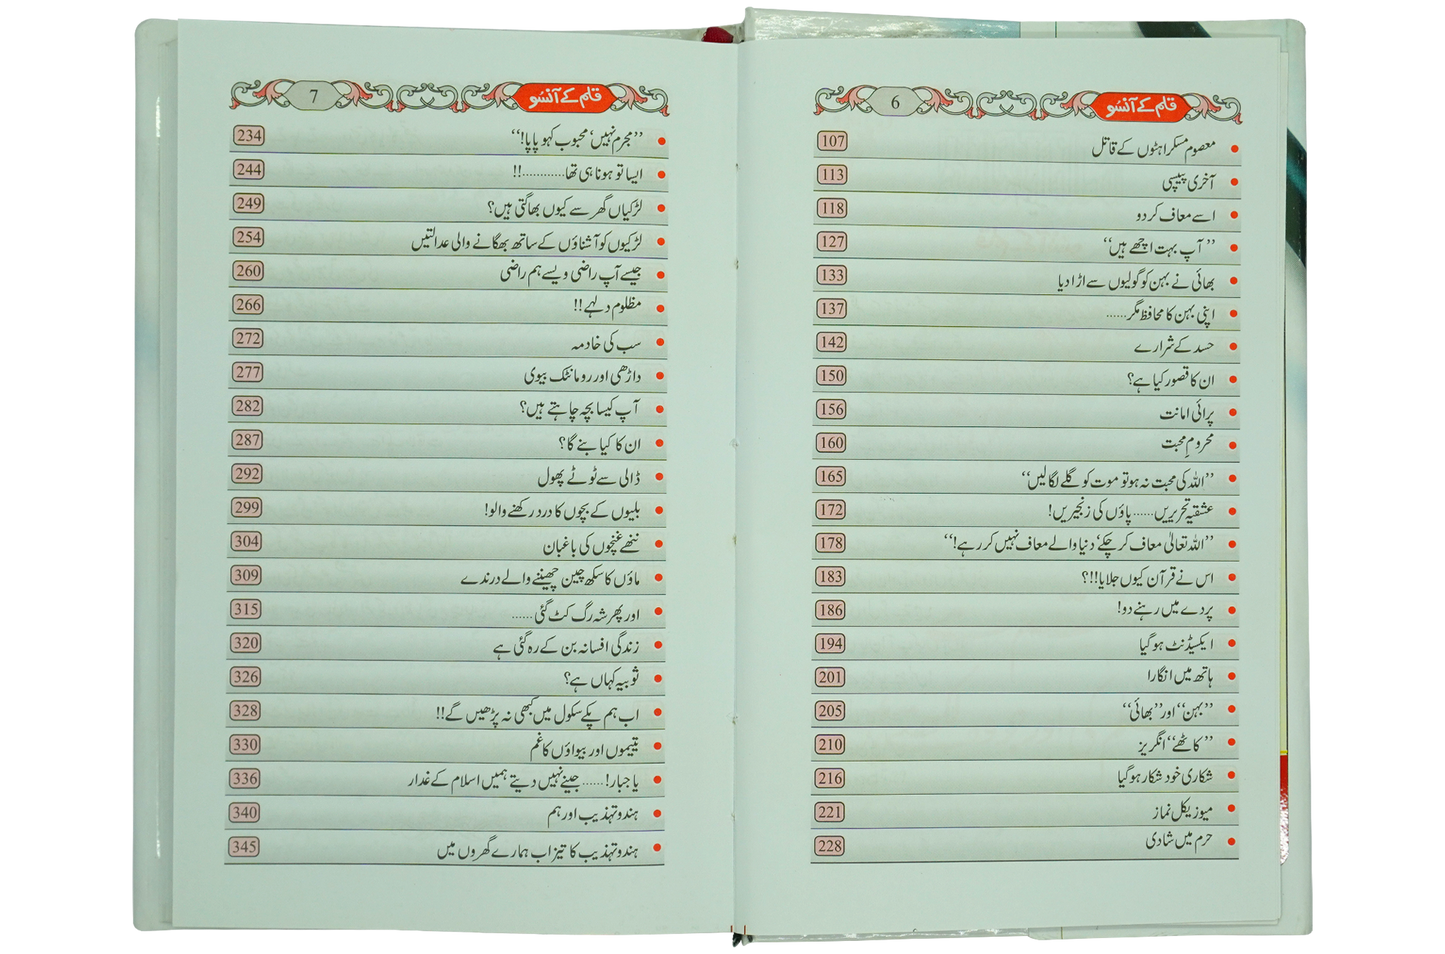 قلم کے آنسُو 6
معصوم مسکراہٹوں کے قاتل 107
آخری پیپسی 113
اسے معاف کر دو 118
’’ آپ بہت اچھے ہیں‘‘ 127
بھائی نے بہن کو گولیوں سے اڑا دیا 133
اپنی بہن کا محافظ مگر...... 137
حسد کے شرارے 142
ان کا قصور کیا ہے؟ 150
پرائی امانت 156
محرومِ محبت 160
’’اللہ کی محبت نہ ہو تو موت کو گلے لگا لیں‘‘ 165
عشقیہ تحریریں...... پاؤں کی زنجیریں! 172
’’اللہ تعالیٰ معاف کر چکے‘ دنیا والے معاف نہیں کر رہے!‘‘ 178
اس نے قرآن کیوں جلایا!!؟ 183
پردے میں رہنے دو! 186
ایکسیڈنٹ ہو گیا 194
ہاتھ میں انگارا 201
’’بہن‘‘ اور ’’بھائی‘‘ 205
’’ کاٹھے‘‘ انگریز 210
شکاری خود شکار ہو گیا 216
میوزیکل نماز 221
حرم میں شادی 228
قلم کے آنسُو 7
’’مجرم نہیں‘ محبوب کہو پاپا!‘‘ 234
ایسا تو ہونا ہی تھا............!! 244
لڑکیاں گھر سے کیوں بھاگتی ہیں؟ 249
لڑکیوں کو آشناؤں کے ساتھ بھگانے والی عدالتیں 254
جیسے آپ راضی ویسے ہم راضی 260
مظلوم دلہے!! 266
سب کی خادمہ 272
داڑھی اور رومانٹک بیوی 277
آپ کیسا بچہ چاہتے ہیں؟ 282
ان کا کیا بنے گا؟ 287
ڈالی سے ٹوٹے پھول 292
بلیوں کے بچوں کا درد رکھنے والو! 299
ننھے غنچوں کی باغبان 304
ماؤں کا سکھ چین چھیننے والے درندے 309
اور پھر شہ رگ کٹ گئی...... 315
زندگی افسانہ بن کے رہ گئی ہے 320
ثوبیہ کہاں ہے؟ 326
اب ہم پکے سکول میں کبھی نہ پڑھیں گے!! 328
یتیموں اور بیواؤں کا غم 330
یا جبار!...... جینے نہیں دیتے ہمیں اسلام کے غدار 336
ہندو تہذیب اور ہم 340
ہندو تہذیب کا تیزاب ہمارے گھروں میں 345